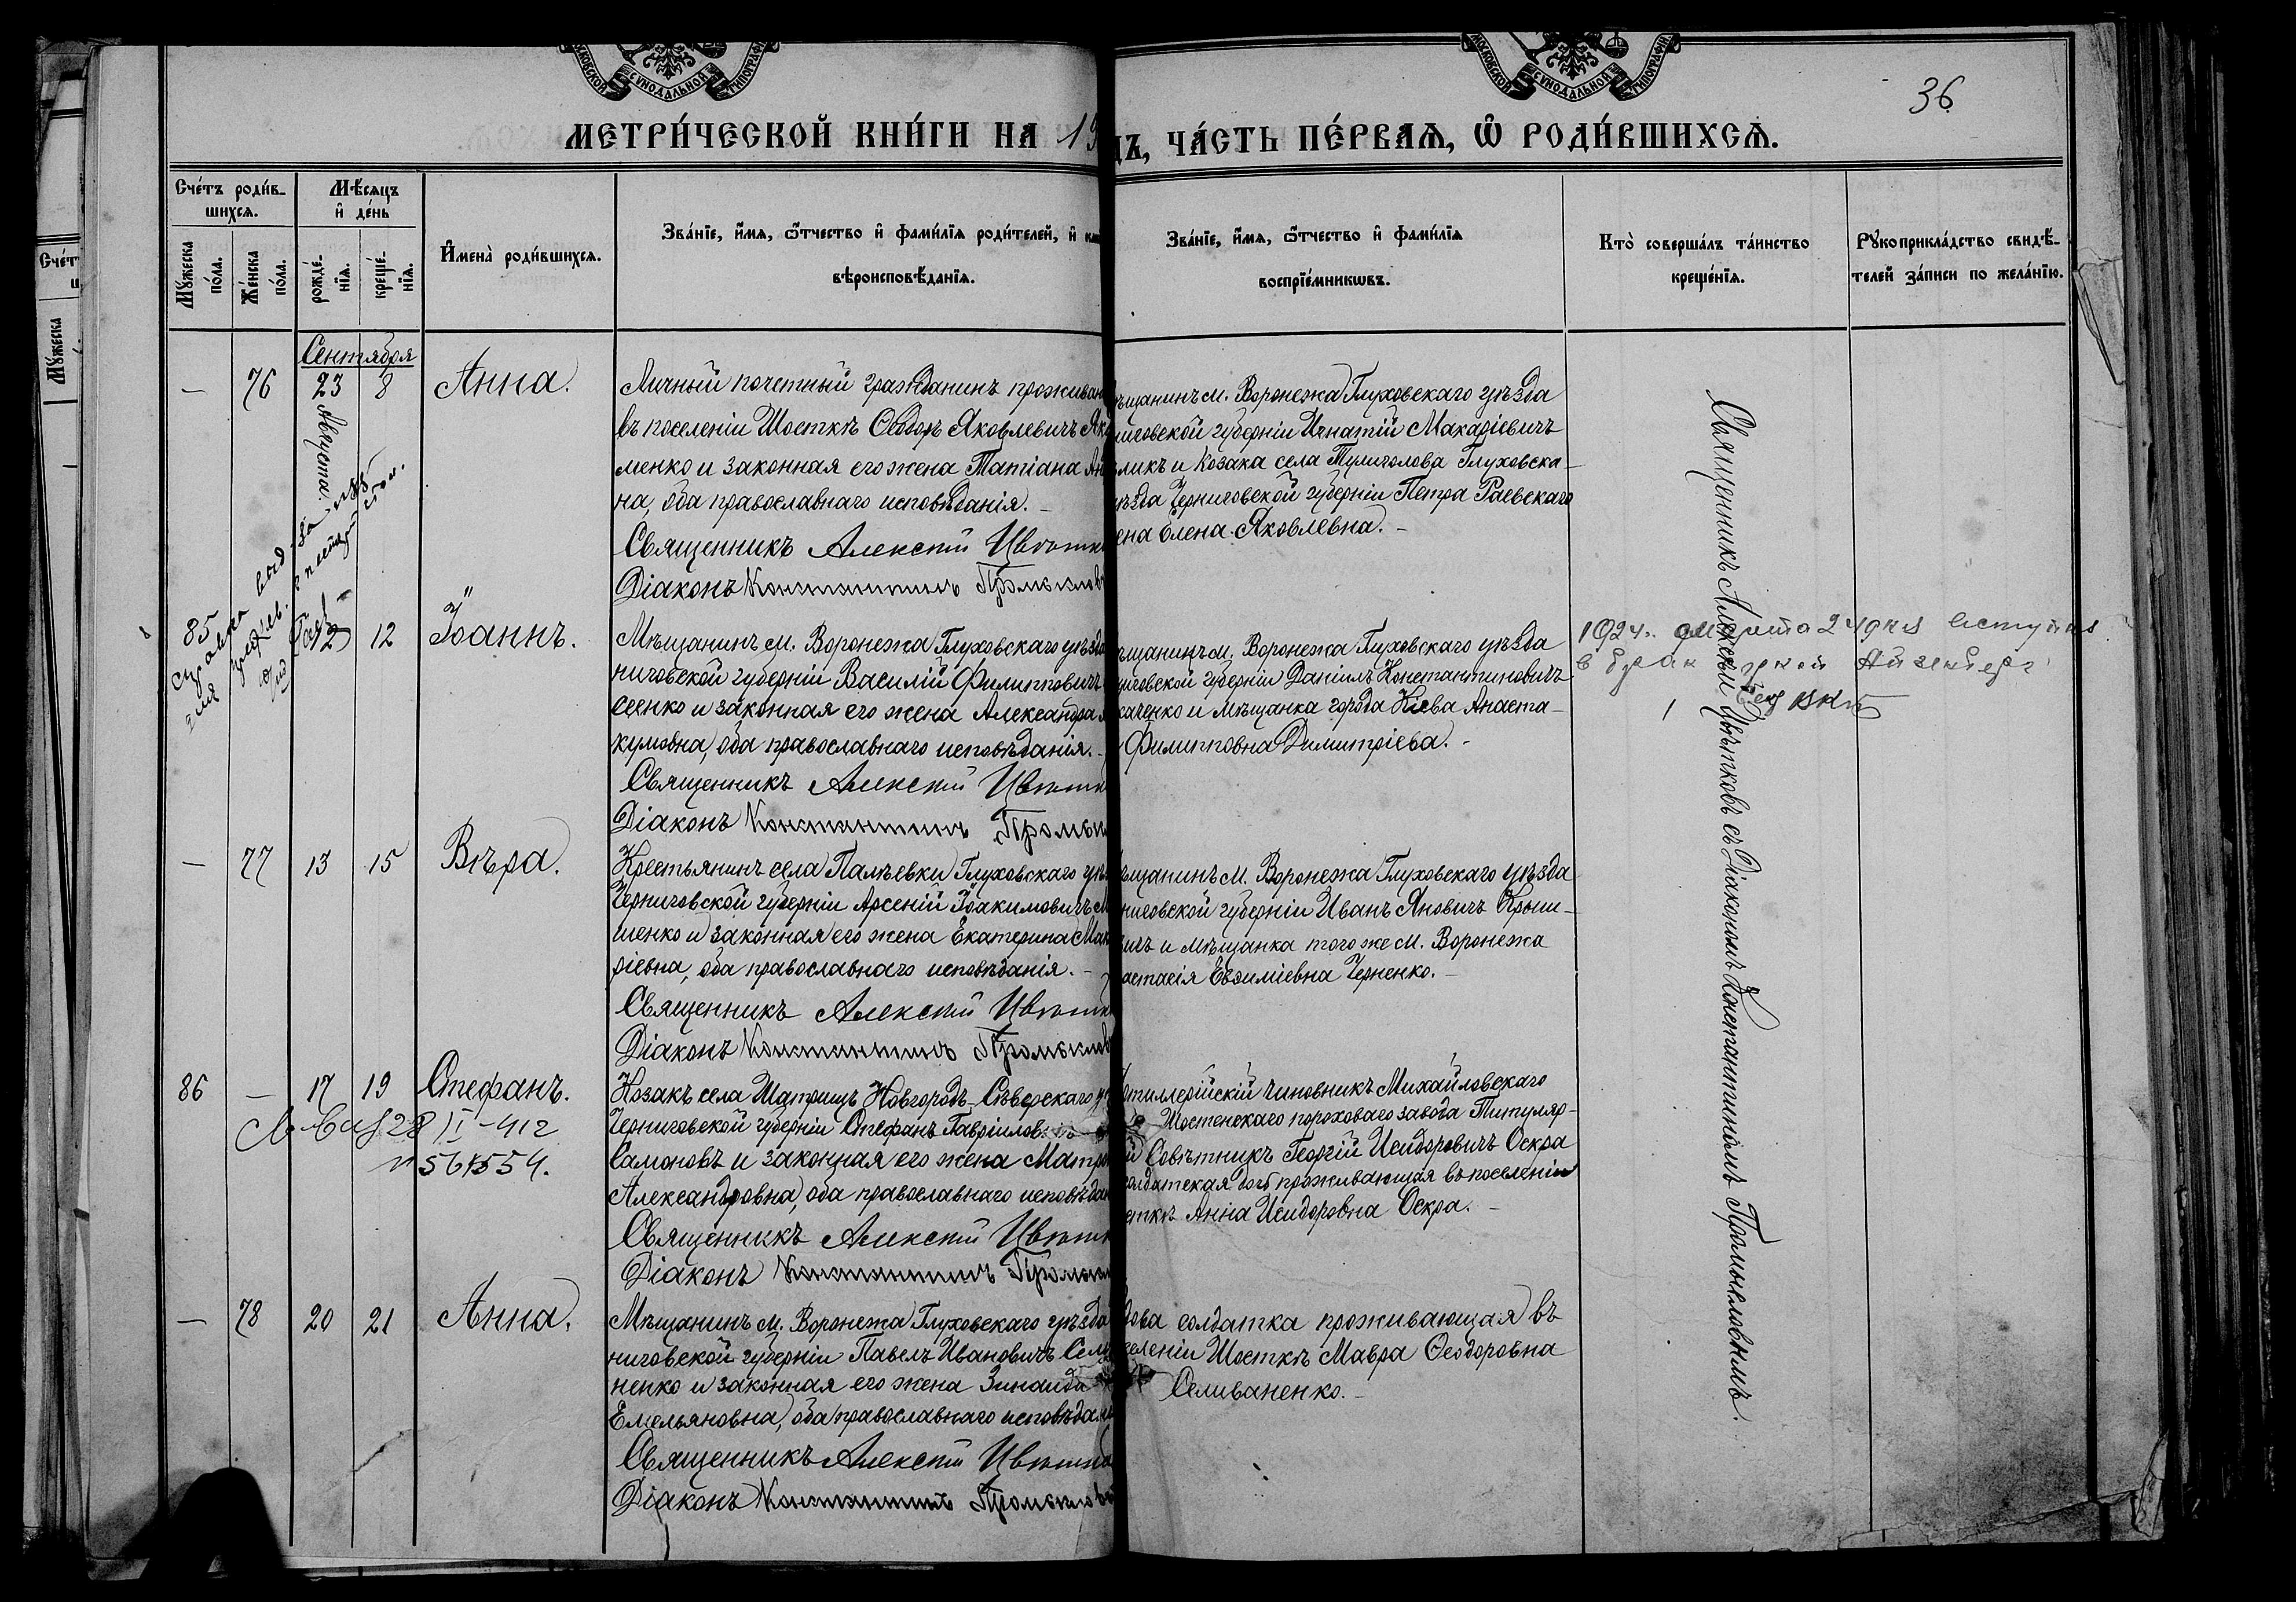 МОСКОВСКОЙ СѴНОДАЛЬНОЙ ТИПОГРАФІИ
МОСКОВСКОЙ СѴНОДАЛЬНОЙ ТИПОГРАФІИ
36
МЕТРИ́ЧЕСКОЙ КНИ́ГИ НА 19
ДЪ, ЧА́СТЬ ПЕ́РВАѦ, Ѡ҆ РОДИ́ВШИХСѦ.
Сче́тъ роди́в-
шихсѧ.
Мѣ́сѧцъ
и҆ де́нь
Мꙋ́жеска
по́ла.
Же́нска
по́ла.
рожде́-
нїѧ.
креще́-
нїѧ.
И҆мена̀ роди́вшихсѧ.
Зва́нїе, и҆́мѧ, ѻ҆́тчество и҆ фами́лїѧ роди́телей, и҆
вѣроисповѣ́данїѧ.
Зва́нїе, и҆́мѧ, ѻ҆́тчество и҆ фами́лїѧ
воспрїе́мникѡвъ.
Кто̀ соверша́лъ та́инство
креще́нїѧ.
Рꙋкоприкла́дство свидѣ́-
телей за́писи по жела́нїю.
Сентября
— 76 23 8 Анна.
Августа.
Личный почетный гражданинъ прожива
въ поселеніи Шосткѣ Ѳеодоръ Яковлевичъ Як
менко и законная его жена Татіана
на, оба православнаго исповѣданія. —
Священникъ Алексій Цвѣтк
Діаконъ Константинъ Промысловъ
щанинъ м. Воронежа Глуховскаго уѣзда
ниговской губерніи Игнатій Макаріевичъ
ликъ и Козака села Тулиголова Глуховска-
уѣзда Черниговской губерніи Петра Раевскаго
ена Елена Яковлевна. —
85 12 12 Іоаннъ.
Мѣщанинъ м. Воронежа Глуховскаго уѣзда
ниговской губерніи Василій Филипповичъ
сенко и законная его жена Александра
кумовна, оба православнаго исповѣданія. —
Священникъ Алексій Цвѣтк
Діаконъ Константинъ Промысл
щанинъ м. Воронежа Глуховскаго уѣзда
ниговской губерніи Даніилъ Константиновичъ
каченко и мѣщанка города Кіева Анаста-
Филипповна Димитріева. —
1924 марта 24 дня вступил
в брак
— 77 13 15 Вѣра.
Крестьянинъ села Палѣевки Глуховскаго уѣ
Черниговской губерніи Арсеній Іоакимовичъ
шенко и законная его жена Екатерина Мак
ріевна, оба православнаго исповѣданія. —
Священникъ Алексій Цвѣтк
Діаконъ Константинъ Промыслов
щанинъ м. Воронежа Глуховскаго уѣзда
ниговской губерніи Иванъ Яновичъ
и мѣщанка того же м. Воронежа
астасія Евѳиміевна Черненко. —
86 — 17 19 Стефанъ.
Козакъ села Шатрищъ Новгородъ-Сѣверскаго
Черниговской губерніи Стефанъ Гавріилов
Самоновъ и законная его жена Матро
Александровна, оба православнаго исповѣдан
Священникъ Алексій Цвѣтк
Діаконъ Константинъ Промысл
ртиллерійскій чиновникъ Михайловскаго
Шостенскаго пороховаго завода Титуляр-
й Совѣтникъ Георгій Исидоровичъ Оскра
олдатская дочь проживающая въ поселеніи
сткѣ Анна Исидоровна Оскра. —
— 78 20 21 Анна.
Мѣщанинъ м. Воронежа Глуховскаго уѣзда
ниговской губерніи Павелъ Ивановичъ Сели
ненко и законная его жена Зинаида
Емельяновна, оба православнаго исповѣдан
Священникъ Алексій Цвѣтков
Діаконъ Константинъ Промыслов
дова солдатка проживающая въ
селеніи Шосткѣ Мавра Ѳеодоровна
Селиваненко. —
Священникъ Алексій Цвѣтковъ съ Діакономъ Константиномъ Промысловымъ.